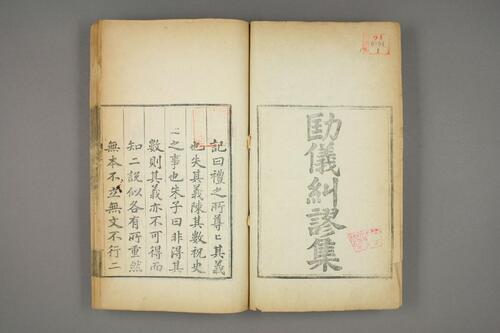 勘儀糾謬集
記曰禮之所尊〻其義
也失其義陳其數祝史
之事也朱子曰非得其
數則其義亦不可得而
知二說似各有所重然
無本不立無文不行二